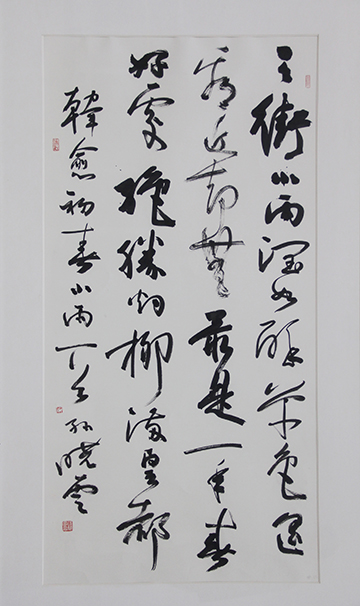 天街小雨潤如酥草色遥
看近却無最是一年春
好處絶勝烟柳滿皇都
韓愈初春小雨丁亥孫曉雲